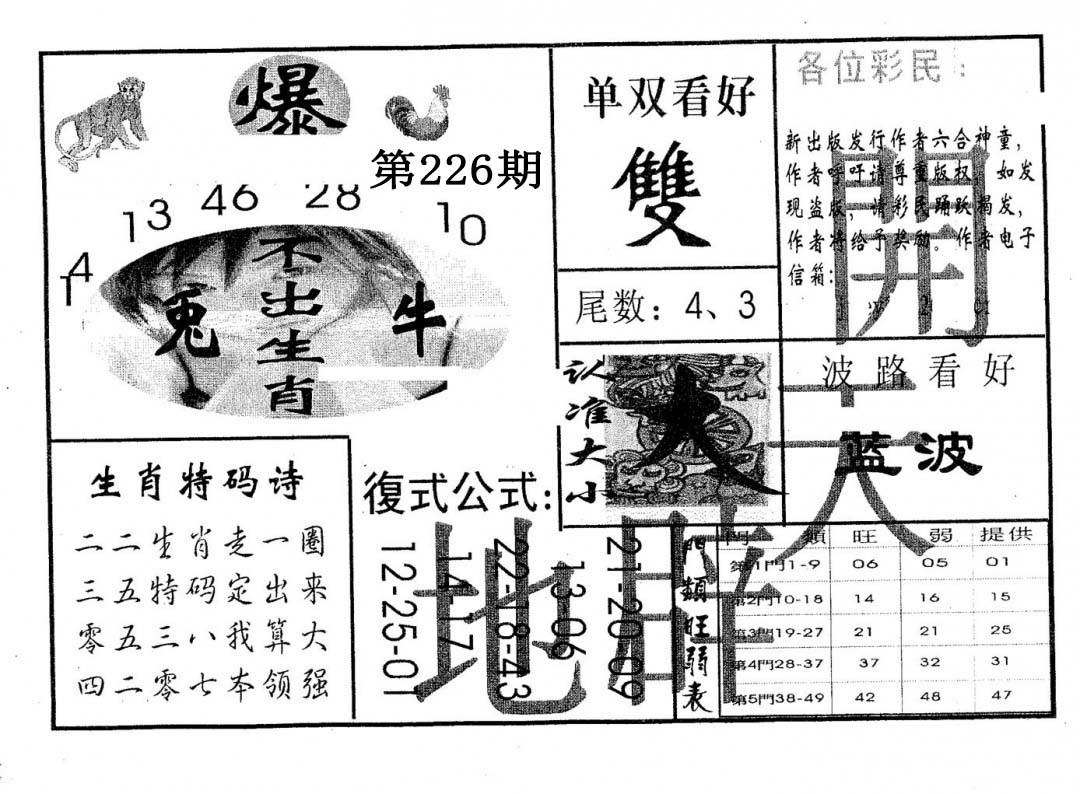 爆
第226期
14
13
46
28
10
不出生肖
兔
牛
单双看好
雙
尾数：4、3
各位彩民：
新出版发行作者六合神童，
作者呼吁请尊重版权，如发
现盗版，请彩民踊跃揭发，
作者将给予奖励。作者电子
信箱：
認准大小
大
波路看好
蓝波
開
天
地
生肖特码诗
二二生肖走一圈
三五特码定出来
零五三八我算大
四二零七本领强
復式公式：
12-25-01
14-17
22-18-43
13-06
21-20-09
門類旺弱表
門 類 旺 弱 提供
第1門1-9 06 05 01
第2門10-18 14 16 15
第3門19-27 21 21 25
第4門28-37 37 32 31
第5門38-49 42 48 47